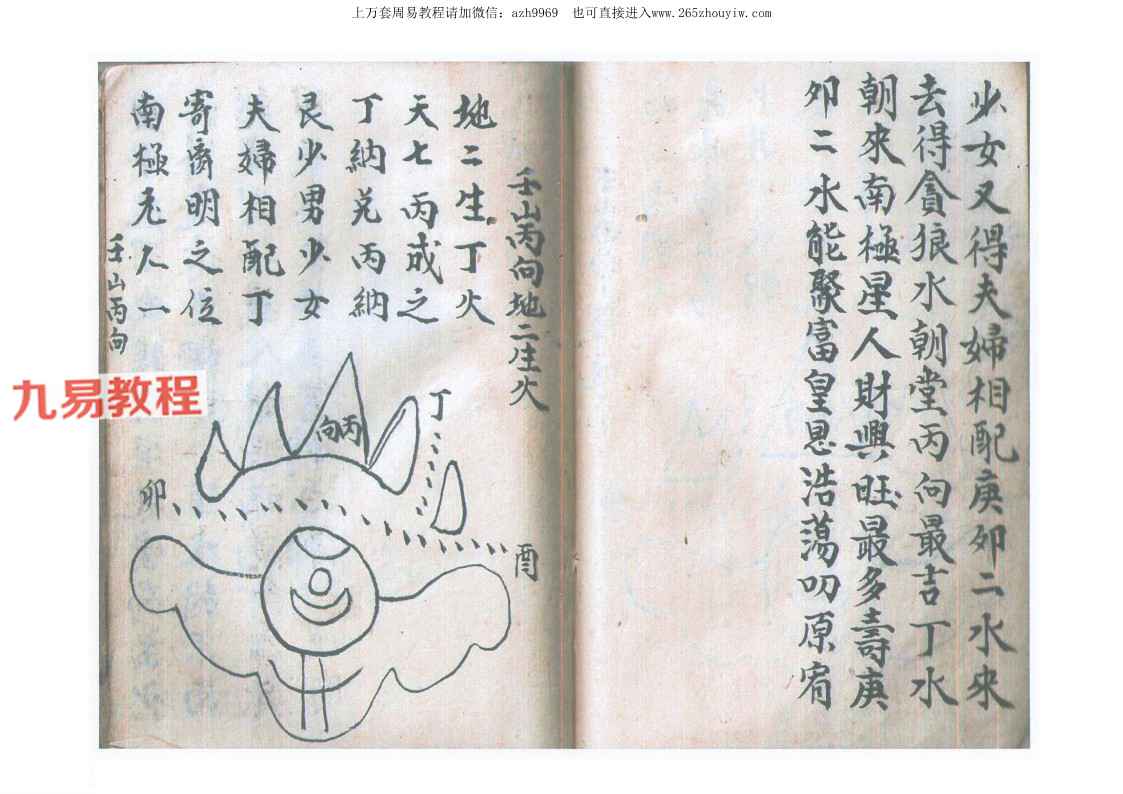 上万套周易教程请加微信：azh9969 也可直接进入www.265zhouyiw.com
少女又得夫婦相配庚夘二水來
去得貪狼水朝堂丙向最吉丁水
朝來南極星人財興旺最多壽庚
夘二水能聚富皇恩浩蕩叨原宥
壬山丙向地二生火
地二生丁火
天七丙成之
丁納兌丙納
艮少男少女
夫婦相配丁
寄离明之位
南極老人一
壬山丙向
九易教程
丙向
丁
卯
酉